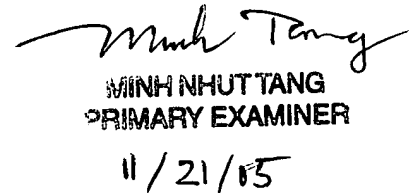 Minh Tang
MINH NHUT TANG
PRIMARY EXAMINER
11/21/05